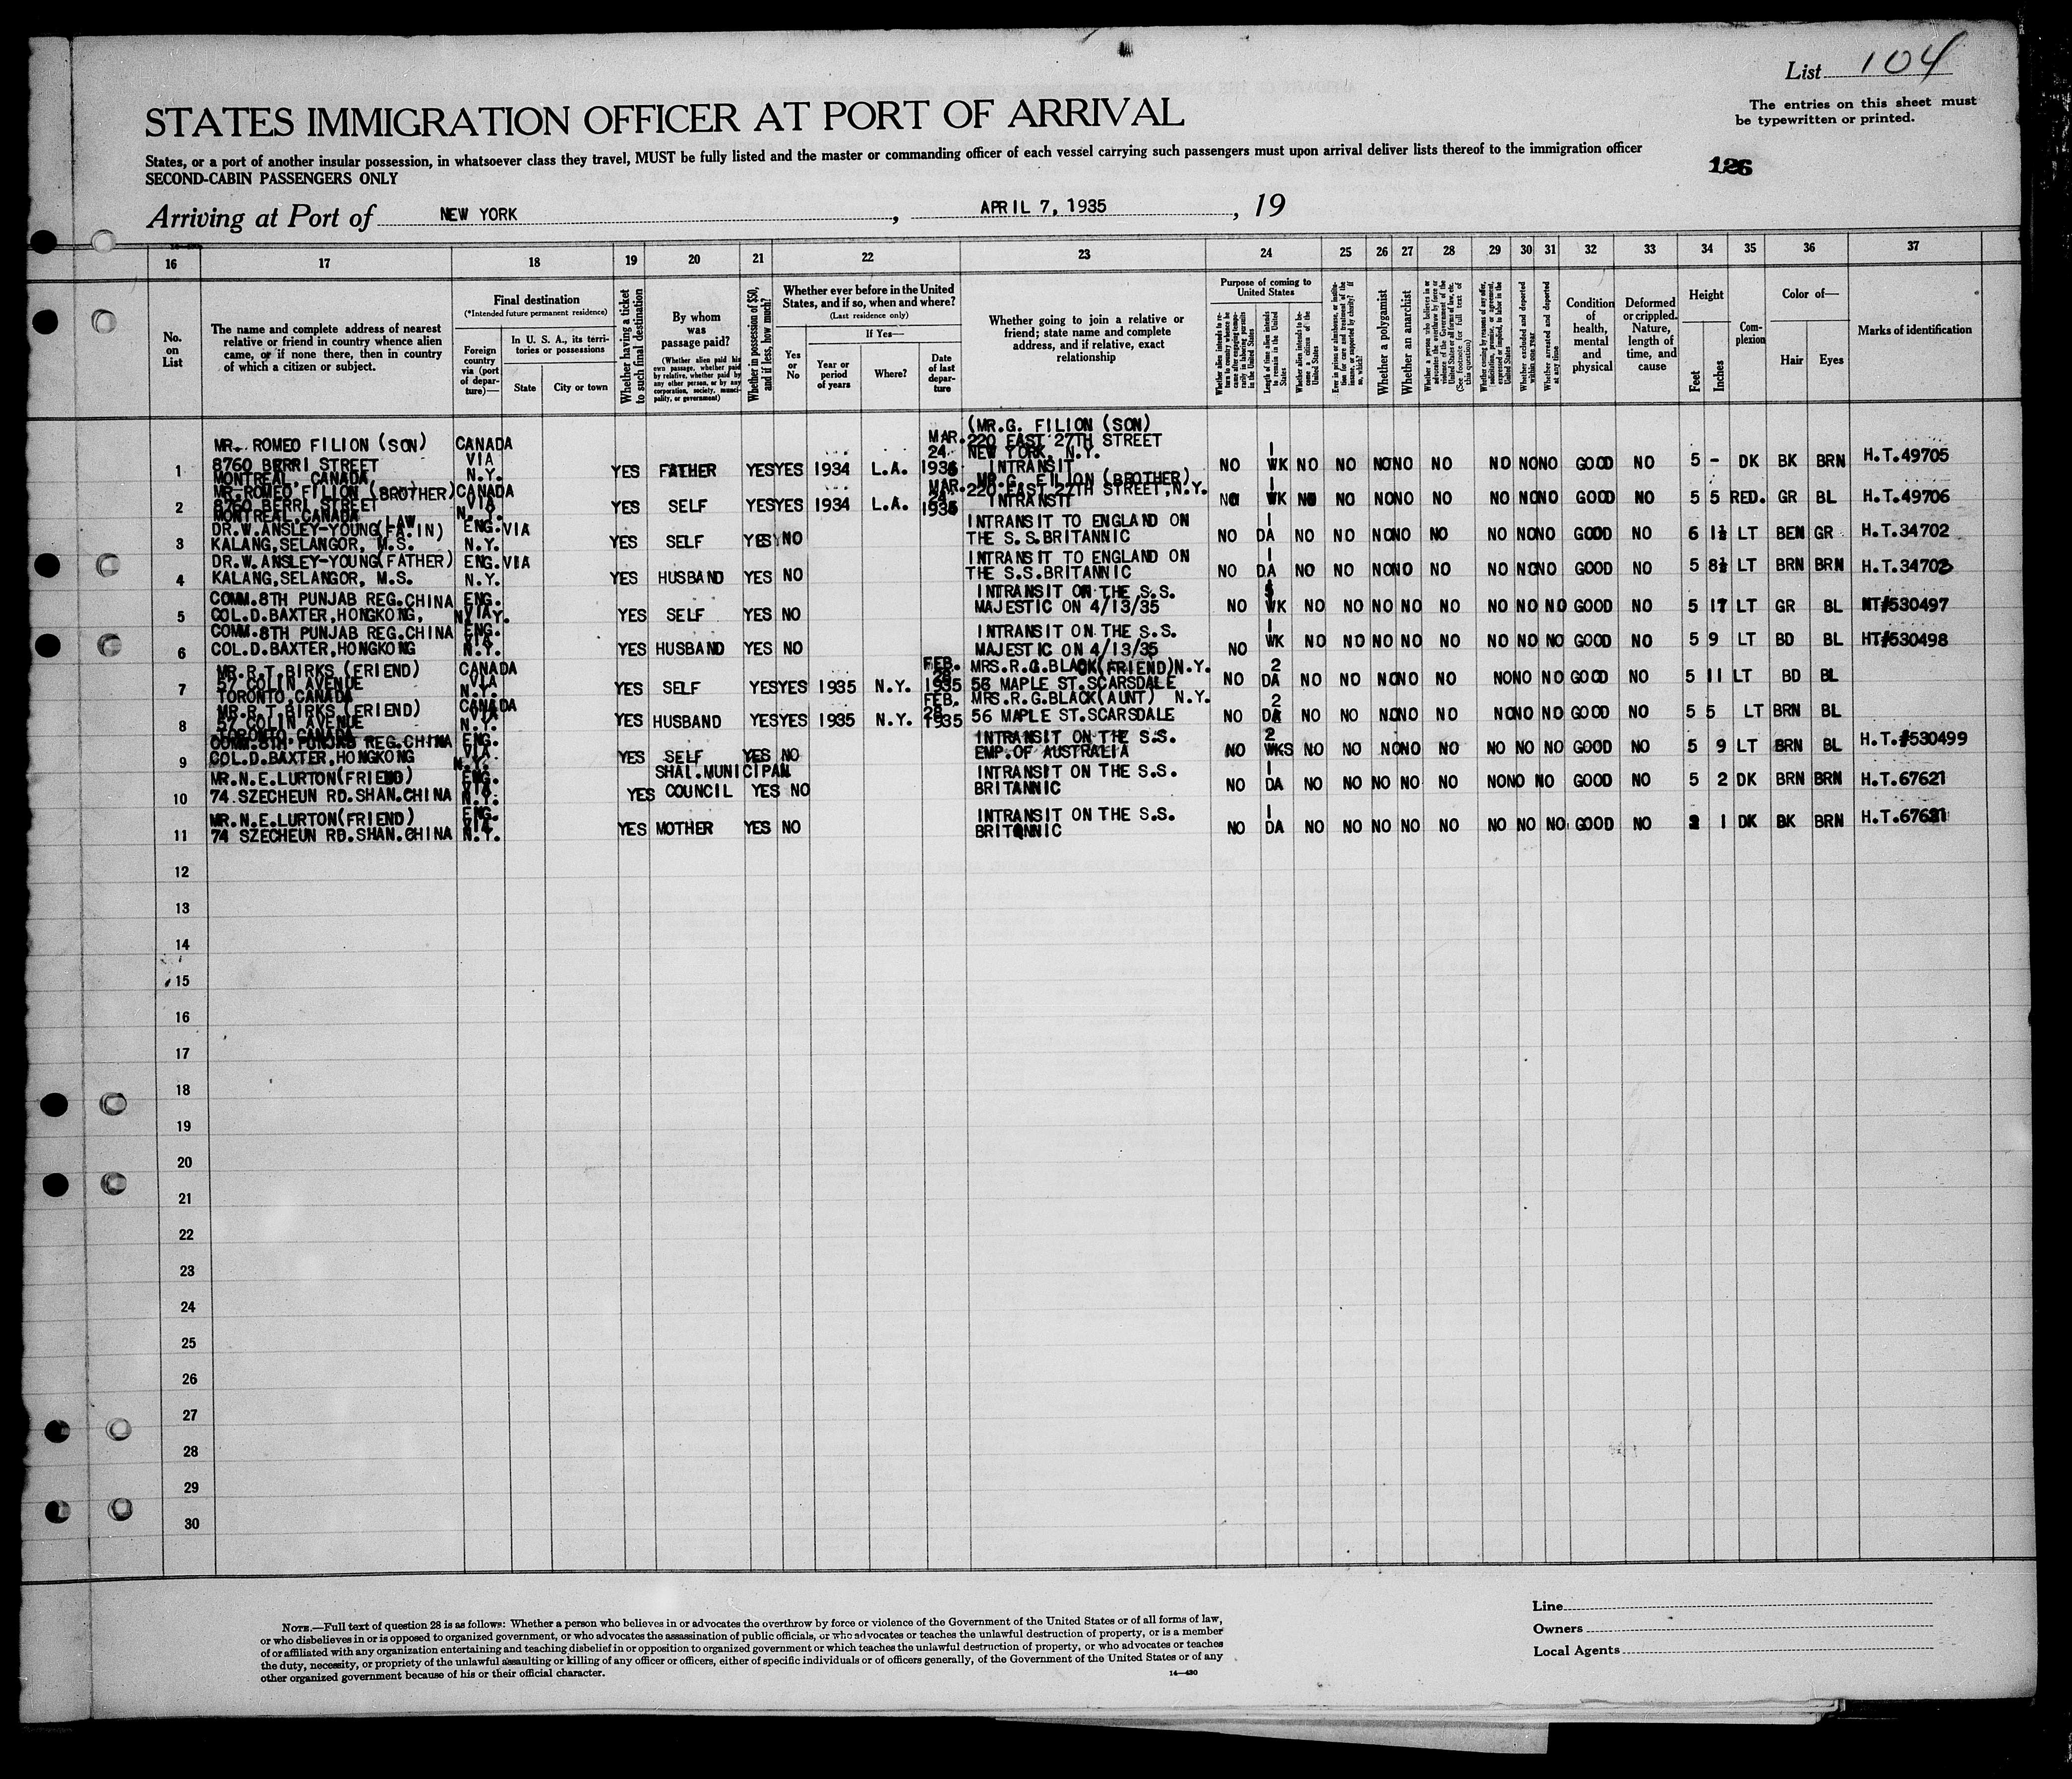 List 104
STATES IMMIGRATION OFFICER AT PORT OF ARRIVAL
The entries on this sheet must
be typewritten or printed.
States, or a port of another insular possession, in whatsoever class they travel, MUST be fully listed and the master or commanding officer of each vessel carrying such passengers must upon arrival deliver lists thereof to the immigration officer
SECOND-CABIN PASSENGERS ONLY
126
Arriving at Port of NEW YORK, APRIL 7, 1935, 19
16 17 18 19 20 21 22 23 24 25 26 27 28 29 30 31 32 33 34 35 36 37
No. on List
The name and complete address of nearest relative or friend in country whence alien came, or if none there, then in country of which a citizen or subject.
Final destination
(*Intended future permanent residence)
Foreign country via (port of departure)—
In U. S. A., its territories or possessions
State
City or town
Whether having a ticket to such final destination
By whom was passage paid?
(Whether alien paid his own passage, whether paid by relative, whether paid by any other person, or by any corporation, society, municipality, or government)
Whether in possession of $50, and if less, how much?
Whether ever before in the United States, and if so, when and where?
(Last residence only)
If Yes—
Yes or No
Year or period of years
Where?
Date of last departure
Whether going to join a relative or friend; state name and complete address, and if relative, exact relationship
Purpose of coming to United States
Length of time alien intends to remain in the United States
Whether alien intends to become a citizen of the United States
Whether a polygamist
Whether an anarchist
Whether excluded and deported within one year
Whether arrested and deported at any time
Condition of health, mental and physical
Deformed or crippled. Nature, length of time, and cause
Height
Feet
Inches
Complexion
Color of—
Hair
Eyes
Marks of identification
1 MR. ROMEO FILION (SON) 8760 BERRI STREET MONTREAL, CANADA CANADA VIA N.Y. YES FATHER YES YES 1934 L.A. MAR. 24 (MR.G. FILION (SON) 220 EAST 27TH STREET NEW YORK, N.Y. INTRANSIT NO 1 WK NO NO NO NO NO NO NO NO GOOD NO 5 - DK BK BRN H.T.49705
2 MR. ROMEO FILION (BROTHER) 8760 BERRI STREET MONTREAL, CANADA CANADA VIA N.Y. YES SELF YES YES 1934 L.A. MAR. 24 MR.G. FILION (BROTHER) 220 EAST 27TH STREET, N.Y. INTRANSIT NO 1 WK NO NO NO NO NO NO NO NO GOOD NO 5 5 RED. GR BL H.T.49706
3 DR.W.ANSLEY-YOUNG (FA.IN LAW) KALANG,SELANGOR, M.S. ENG.VIA N.Y. YES SELF YES NO INTRANSIT TO ENGLAND ON THE S.S.BRITANNIC NO 1 DA NO NO NO NO NO NO NO NO GOOD NO 6 1½ LT BEN GR H.T.34702
4 DR.W.ANSLEY-YOUNG(FATHER) KALANG,SELANGOR, M.S. ENG.VIA N.Y. YES HUSBAND YES NO INTRANSIT TO ENGLAND ON THE S.S.BRITANNIC NO 1 DA NO NO NO NO NO NO NO NO GOOD NO 5 8½ LT BRN BRN H.T.34703
5 COMM.8TH PUNJAB REG.CHINA COL.D.BAXTER,HONGKONG, ENG. VIA N.Y. YES SELF YES NO INTRANSIT ON THE S.S. MAJESTIC ON 4/13/35 NO WK NO NO NO NO NO NO NO NO GOOD NO 5 LT GR BL HT#530497
6 COMM.8TH PUNJAB REG.CHINA COL.D.BAXTER,HONGKONG ENG. VIA N.Y. YES HUSBAND YES NO INTRANSIT ON THE S.S. MAJESTIC ON 4/13/35 NO 1 WK NO NO NO NO NO NO NO NO GOOD NO 5 9 LT BD BL HT#530498
7 MR.R.T.BIRKS (FRIEND) 57 COLIN AVENUE TORONTO,CANADA CANADA VIA N.Y. YES SELF YES YES 1935 N.Y. FEB. 28 1935 MRS.R.G.BLACK(FRIEND)N.Y. 56 MAPLE ST.SCARSDALE NO 2 DA NO NO NO NO NO NO NO NO GOOD NO 5 11 LT BD BL
8 MR.R.T.BIRKS (FRIEND) 57 COLIN AVENUE TORONTO,CANADA CANADA VIA N.Y. YES HUSBAND YES YES 1935 N.Y. FEB. 28 1935 MRS.R.G.BLACK(AUNT) N.Y. 56 MAPLE ST.SCARSDALE NO 2 DA NO NO NO NO NO NO NO NO GOOD NO 5 5 LT BRN BL
9 COMM.8TH PUNJAB REG.CHINA COL.D.BAXTER,HONGKONG ENG. VIA N.Y. YES SELF YES NO INTRANSIT ON THE S.S. EMP.OF AUSTRALIA NO 2 WKS NO NO NO NO NO NO NO NO GOOD NO 5 9 LT BRN BL H.T.#530499
10 MR.N.E.LURTON(FRIEND) 74 SZECHEUN RD.SHAN.CHINA ENG. VIA N.Y. YES SHAI.MUNICIPAL COUNCIL YES NO INTRANSIT ON THE S.S. BRITANNIC NO 1 DA NO NO NO NO NO NO NO NO GOOD NO 5 2 DK BRN BRN H.T.67621
11 MR.N.E.LURTON(FRIEND) 74 SZECHEUN RD.SHAN.CHINA ENG. VIA N.Y. YES MOTHER YES NO INTRANSIT ON THE S.S. BRITANNIC NO 1 DA NO NO NO NO NO NO NO NO GOOD NO 1 DK BK BRN H.T.67621
12
13
14
15
16
17
18
19
20
21
22
23
24
25
26
27
28
29
30
NOTE.—Full text of question 28 is as follows: Whether a person who believes in or advocates the overthrow by force or violence of the Government of the United States or of all forms of law,
or who disbelieves in or is opposed to organized government, or who advocates the assassination of public officials, or who advocates or teaches the unlawful destruction of property, or is a member
of or affiliated with any organization entertaining and teaching disbelief in or opposition to organized government or which teaches the unlawful destruction of property, or who advocates or teaches
the duty, necessity, or propriety of the unlawful assaulting or killing of any officer or officers, either of specific individuals or of officers generally, of the Government of the United States or of any
other organized government because of his or their official character.
14—430
Line
Owners
Local Agents